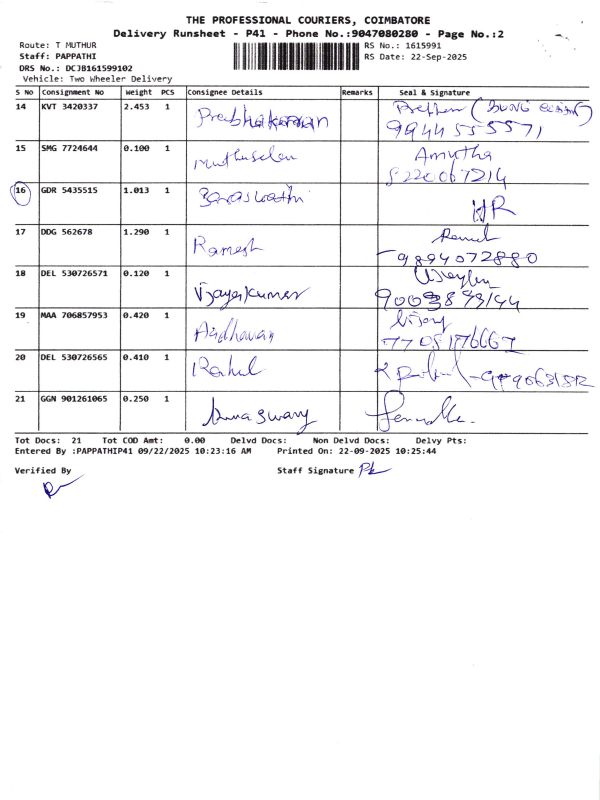 THE PROFESSIONAL COURIERS, COIMBATORE
Delivery Runsheet - P41 - Phone No.:9047080280 - Page No.:2
Route: T MUTHUR RS No.: 1615991
Staff: PAPPATHI RS Date: 22-Sep-2025
DRS No.: DCJB161599102
Vehicle: Two Wheeler Delivery
S No Consignment No Weight PCS Consignee Details Remarks Seal & Signature
14 KVT 3420337 2.453 1 Prabhakaran 9944555571
15 SMG 7724644 0.100 1 Muthuselan Amutha
8220067214
16 GDR 5435515 1.013 1 Saraswathi HR
17 DDG 562678 1.290 1 Ramesh
9894072880
18 DEL 530726571 0.120 1 Vijayakumar
19 MAA 706857953 0.420 1 Aadhavan Vijay
20 DEL 530726565 0.410 1 Rahul
21 GGN 901261065 0.250 1
Tot Docs: 21 Tot COD Amt: 0.00 Delvd Docs: Non Delvd Docs: Delvy Pts:
Entered By :PAPPATHIP41 09/22/2025 10:23:16 AM Printed On: 22-09-2025 10:25:44
Verified By Staff Signature